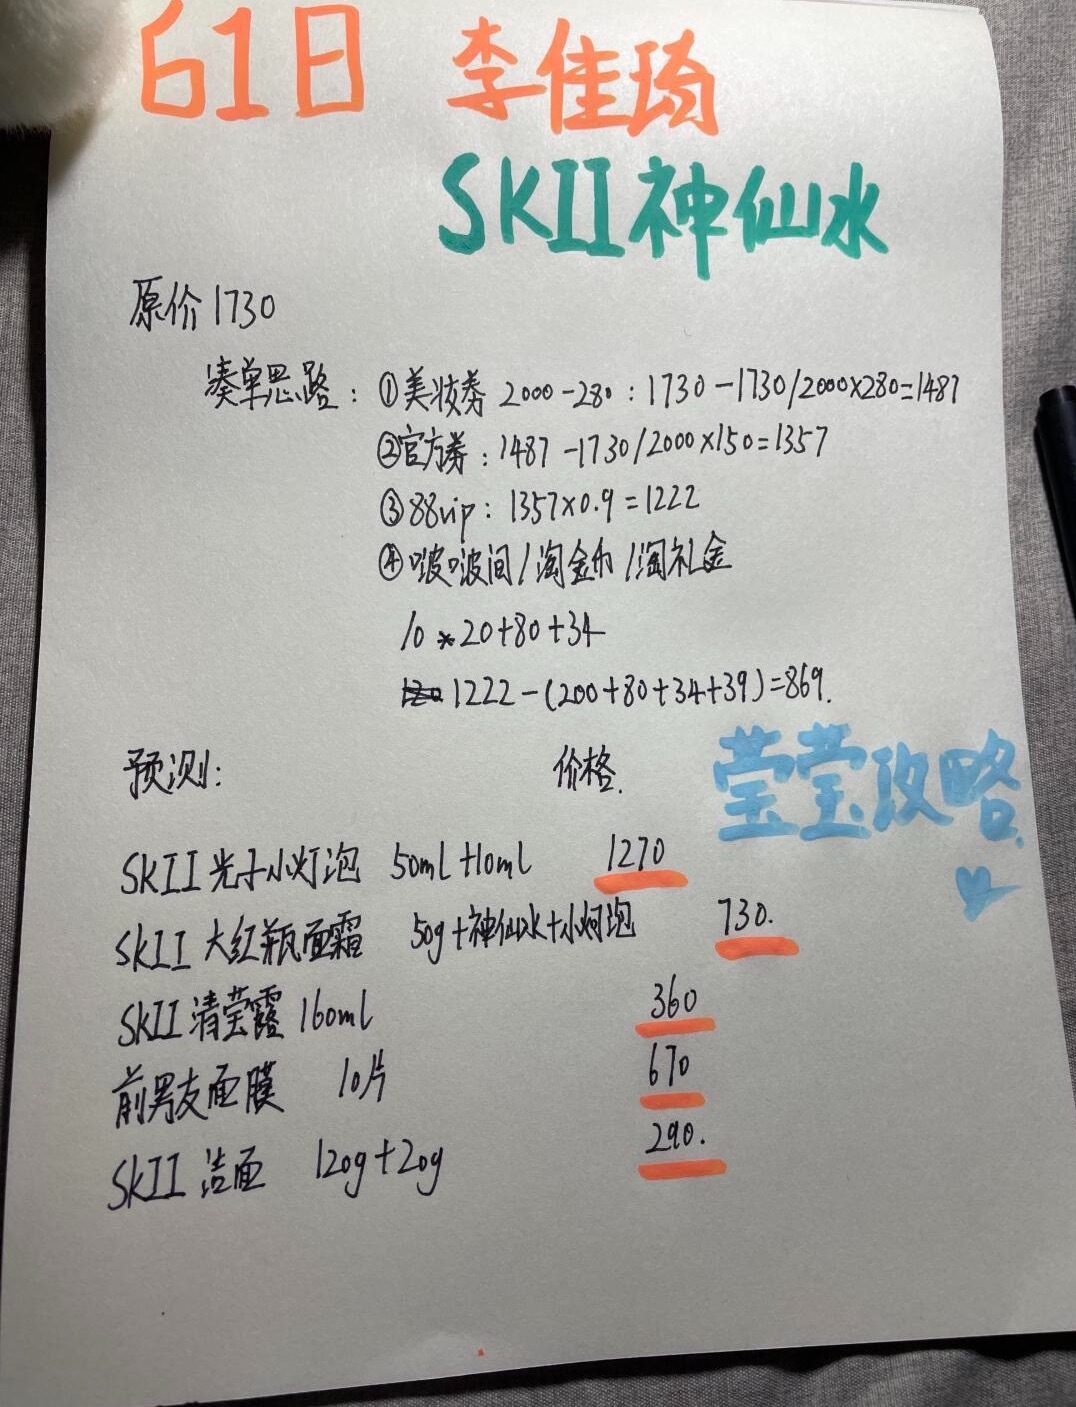 61日 李佳琦
SKII神仙水
原价1730
凑单思路：①美妆券 2000-280：1730-1730/2000×280=1487
②官方券：1487-1730/2000×150=1357
③88vip：1357×0.9=1222
④啵啵间/淘金币/淘礼金
10*20+80+34
1222-(200+80+34+39)=869.
预测： 价格.
莹莹攻略.
SKII光子小灯泡 50ml+10ml 1270
SKII 大红瓶面霜 50g+神仙水+小灯泡 730.
SKII清莹露 160ml 360
前男友面膜 10片 670
SKII 洁面 120g+20g 290.